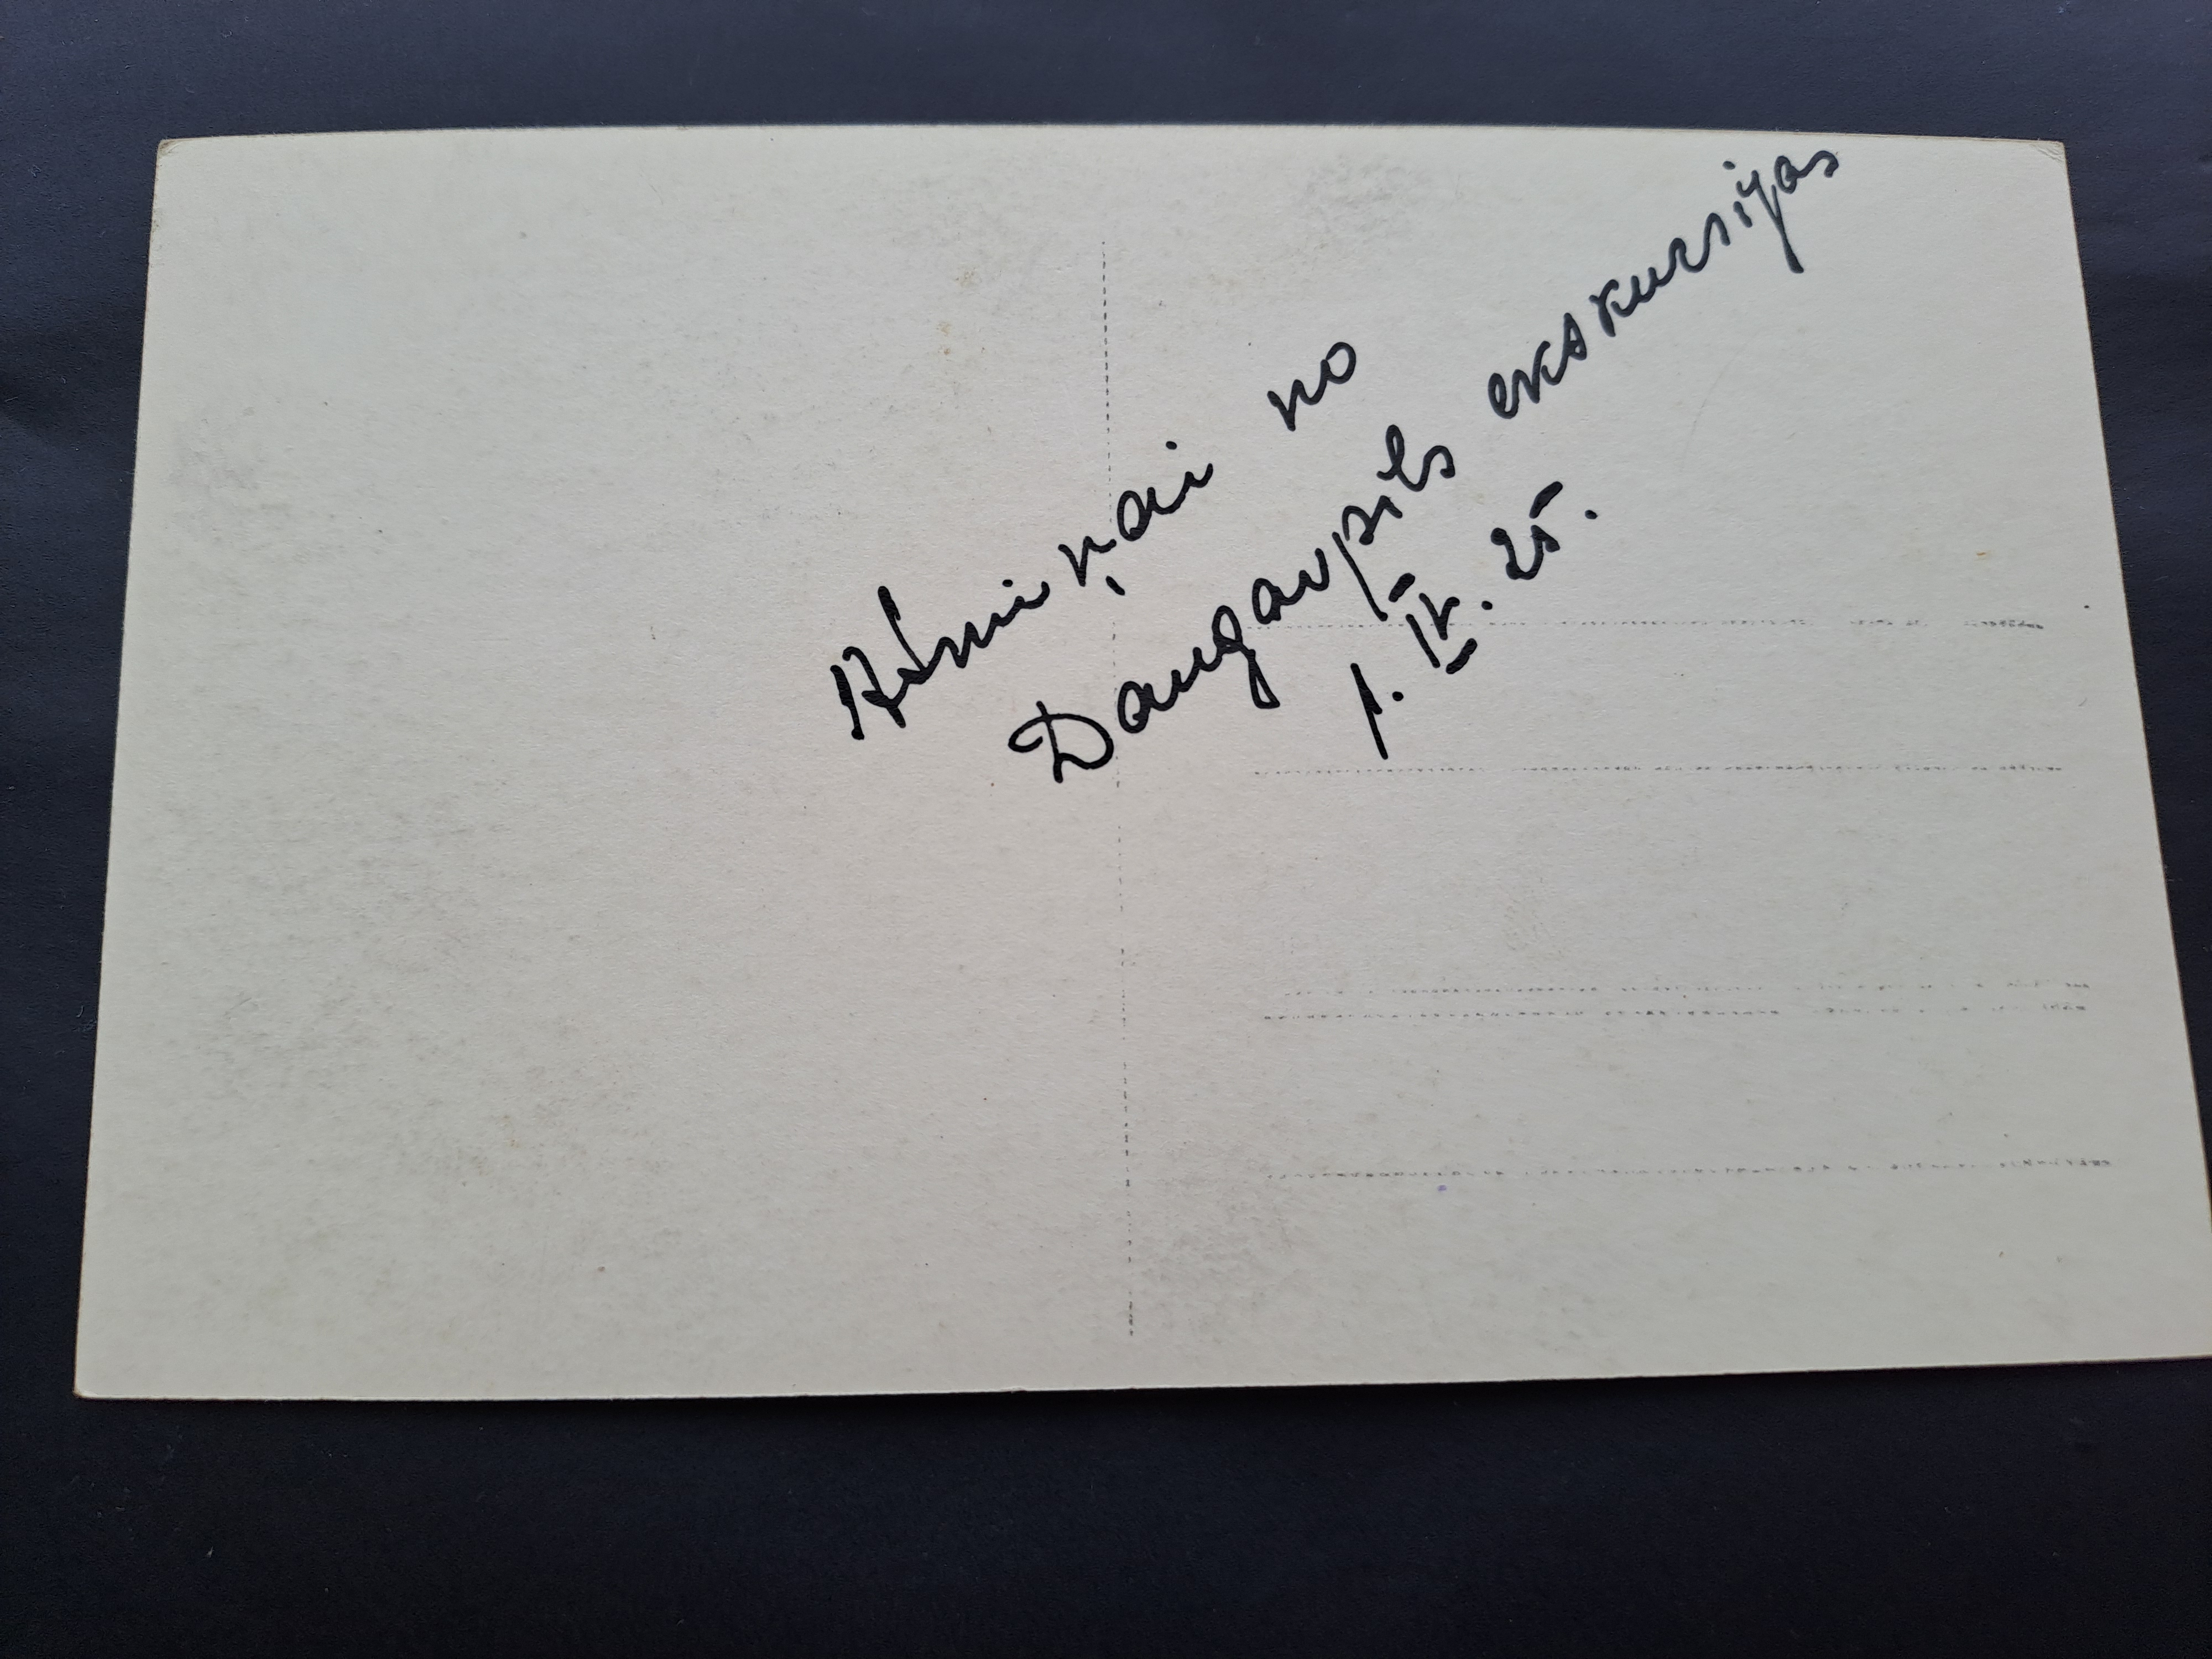 Atmiņai no
Daugavpils ekskursijas
1. IV. 25.